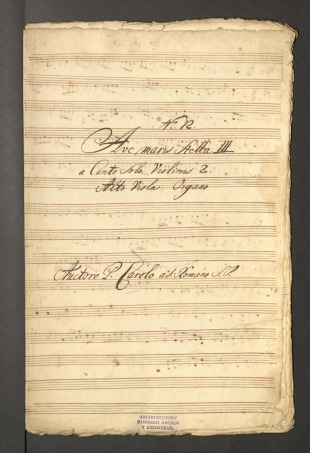 N. 12
Ave maris stella III
a Canto Solo Violinis 2.
Alto Viola Organo
Auctore P. Carolo à S. Romano S.P.
ARCIBISKUPSKÝ
HUDEBNÍ ARCHIV
V KROMĚŘÍŽI